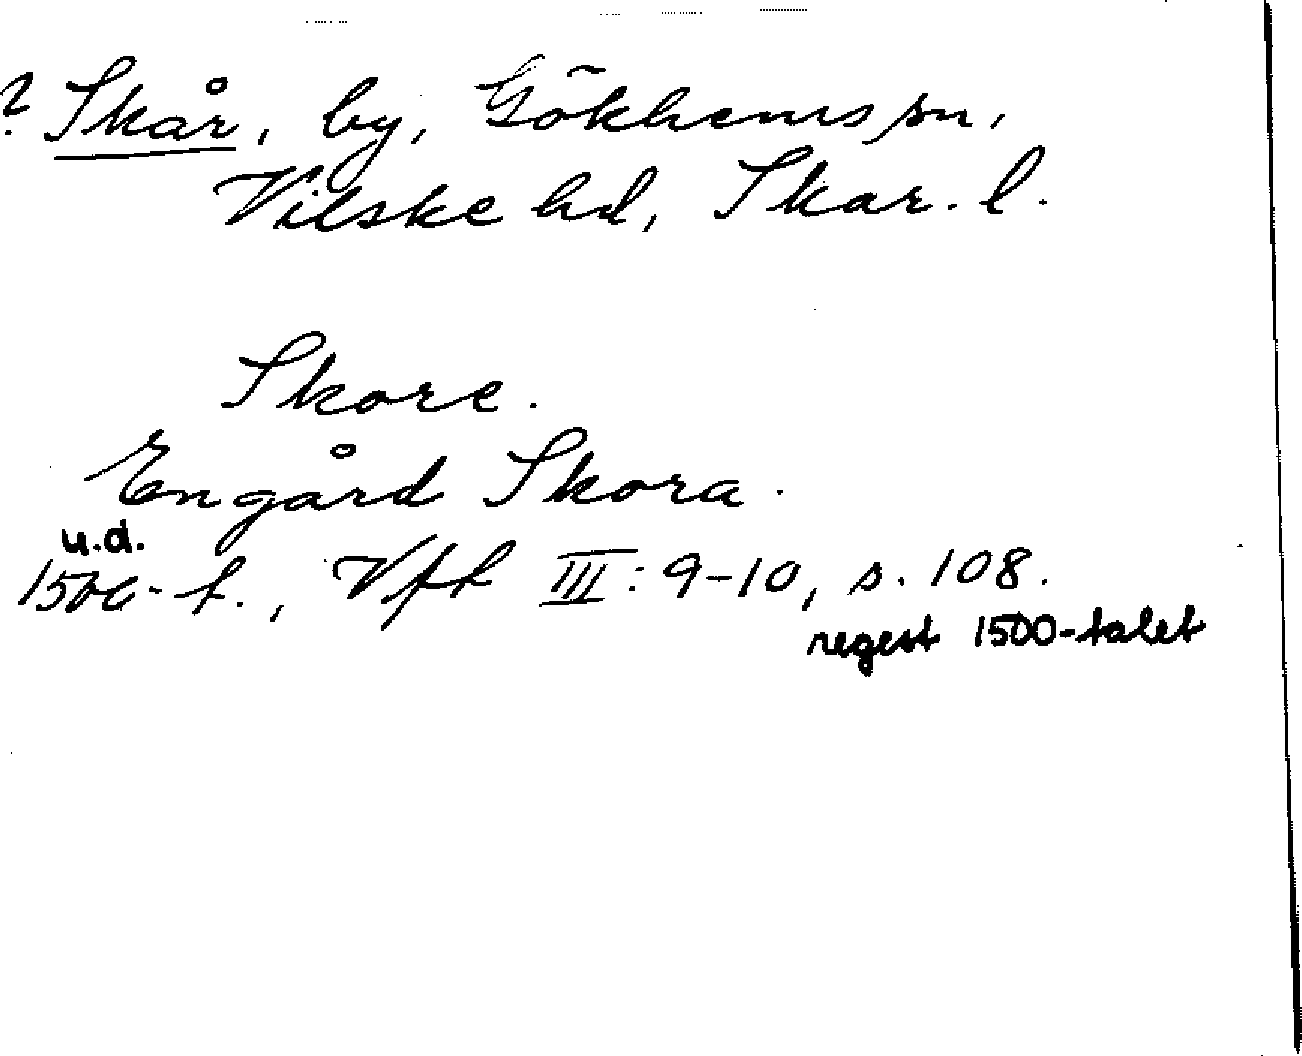 ? Skår, by, Gökhems sn,
Vilske hd, Skar. l.
Skore.
Engård Skora.
u.d.
1500-t., Vfh III: 9-10, s. 108.
regest 1500-talet